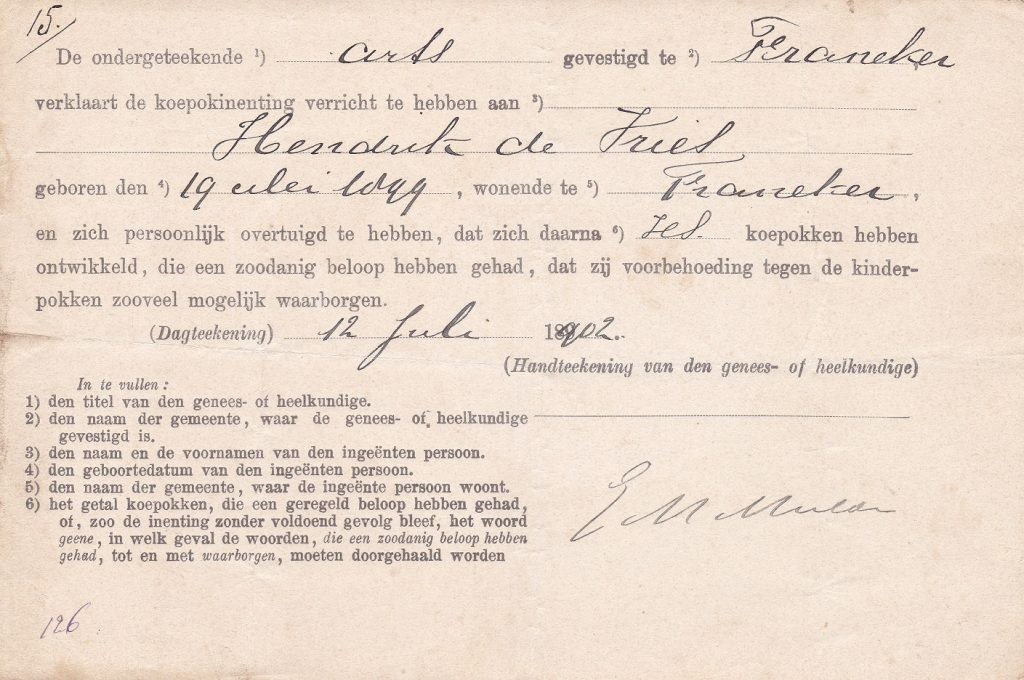 15.
De ondergeteekende 1) arts gevestigd te 2) Franeker
verklaart de koepokinenting verricht te hebben aan 3)
Hendrik de Vries
geboren den 4) 19 Mei 1899, wonende te 5) Franeker,
en zich persoonlijk overtuigd te hebben, dat zich daarna 6) zes. koepokken hebben
ontwikkeld, die een zoodanig beloop hebben gehad, dat zij voorbehoeding tegen de kinder-
pokken zooveel mogelijk waarborgen.
(Dagteekening) 12 Juli 1902.
(Handteekening van den genees- of heelkundige)
In te vullen:
1) den titel van den genees- of heelkundige.
2) den naam der gemeente, waar de genees- of heelkundige
gevestigd is.
3) den naam en de voornamen van den ingeënten persoon.
4) den geboortedatum van den ingeënten persoon.
5) den naam der gemeente, waar de ingeënte persoon woont.
6) het getal koepokken, die een geregeld beloop hebben gehad,
of, zoo de inenting zonder voldoend gevolg bleef, het woord
geene, in welk geval de woorden, die een zoodanig beloop hebben
gehad, tot en met waarborgen, moeten doorgehaald worden
126